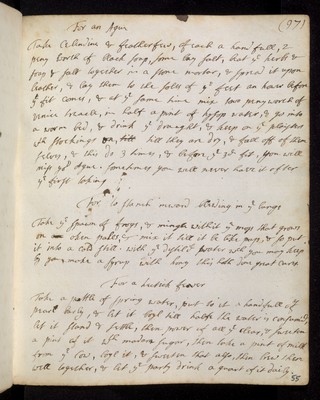 (97)
For an Ague
Take Celindine & featherfew, of each a handfull, 2
peny worth of black sope, some bay salt, beat ye herbs &
sope & salt together in a stone mortar, & spread it upon
leather, & lay them to the soles of ye feet an houre before
ye fit comes, & at ye same time mix two peny worth of
venice treacle, in half a pint of water, & go into
a warm bed, & drink ye draught, & keep on ye plaisters
with stockings till they are dry, & fall off of them
selves, & do this 3 times, & before ye 3d fit, you will
miss ye Ague: somtimes you will never have it after
ye first taking
For to stanch inward bleeding in ye lungs
Take ye spawn of froggs, & mingle with it ye moss that grows
on pales, & mix it till it be like , & so put
it into a cold still: with ye distil'd water you may keep
by you make a syrup with hony this hath don great cures
For a hectick feaver
Take a pottle of spring water, put to it a handfull of
pearl barly, & let it boyl till halfe the water is consumed,
let it stand & settle, then power of all ye clear, & sweeten
a pint of it with sugar, then take a pint of milk
from ye cow, boyl it, & sweeten that also, then brew them
well together, & let ye party drink a quart of it daily.
55